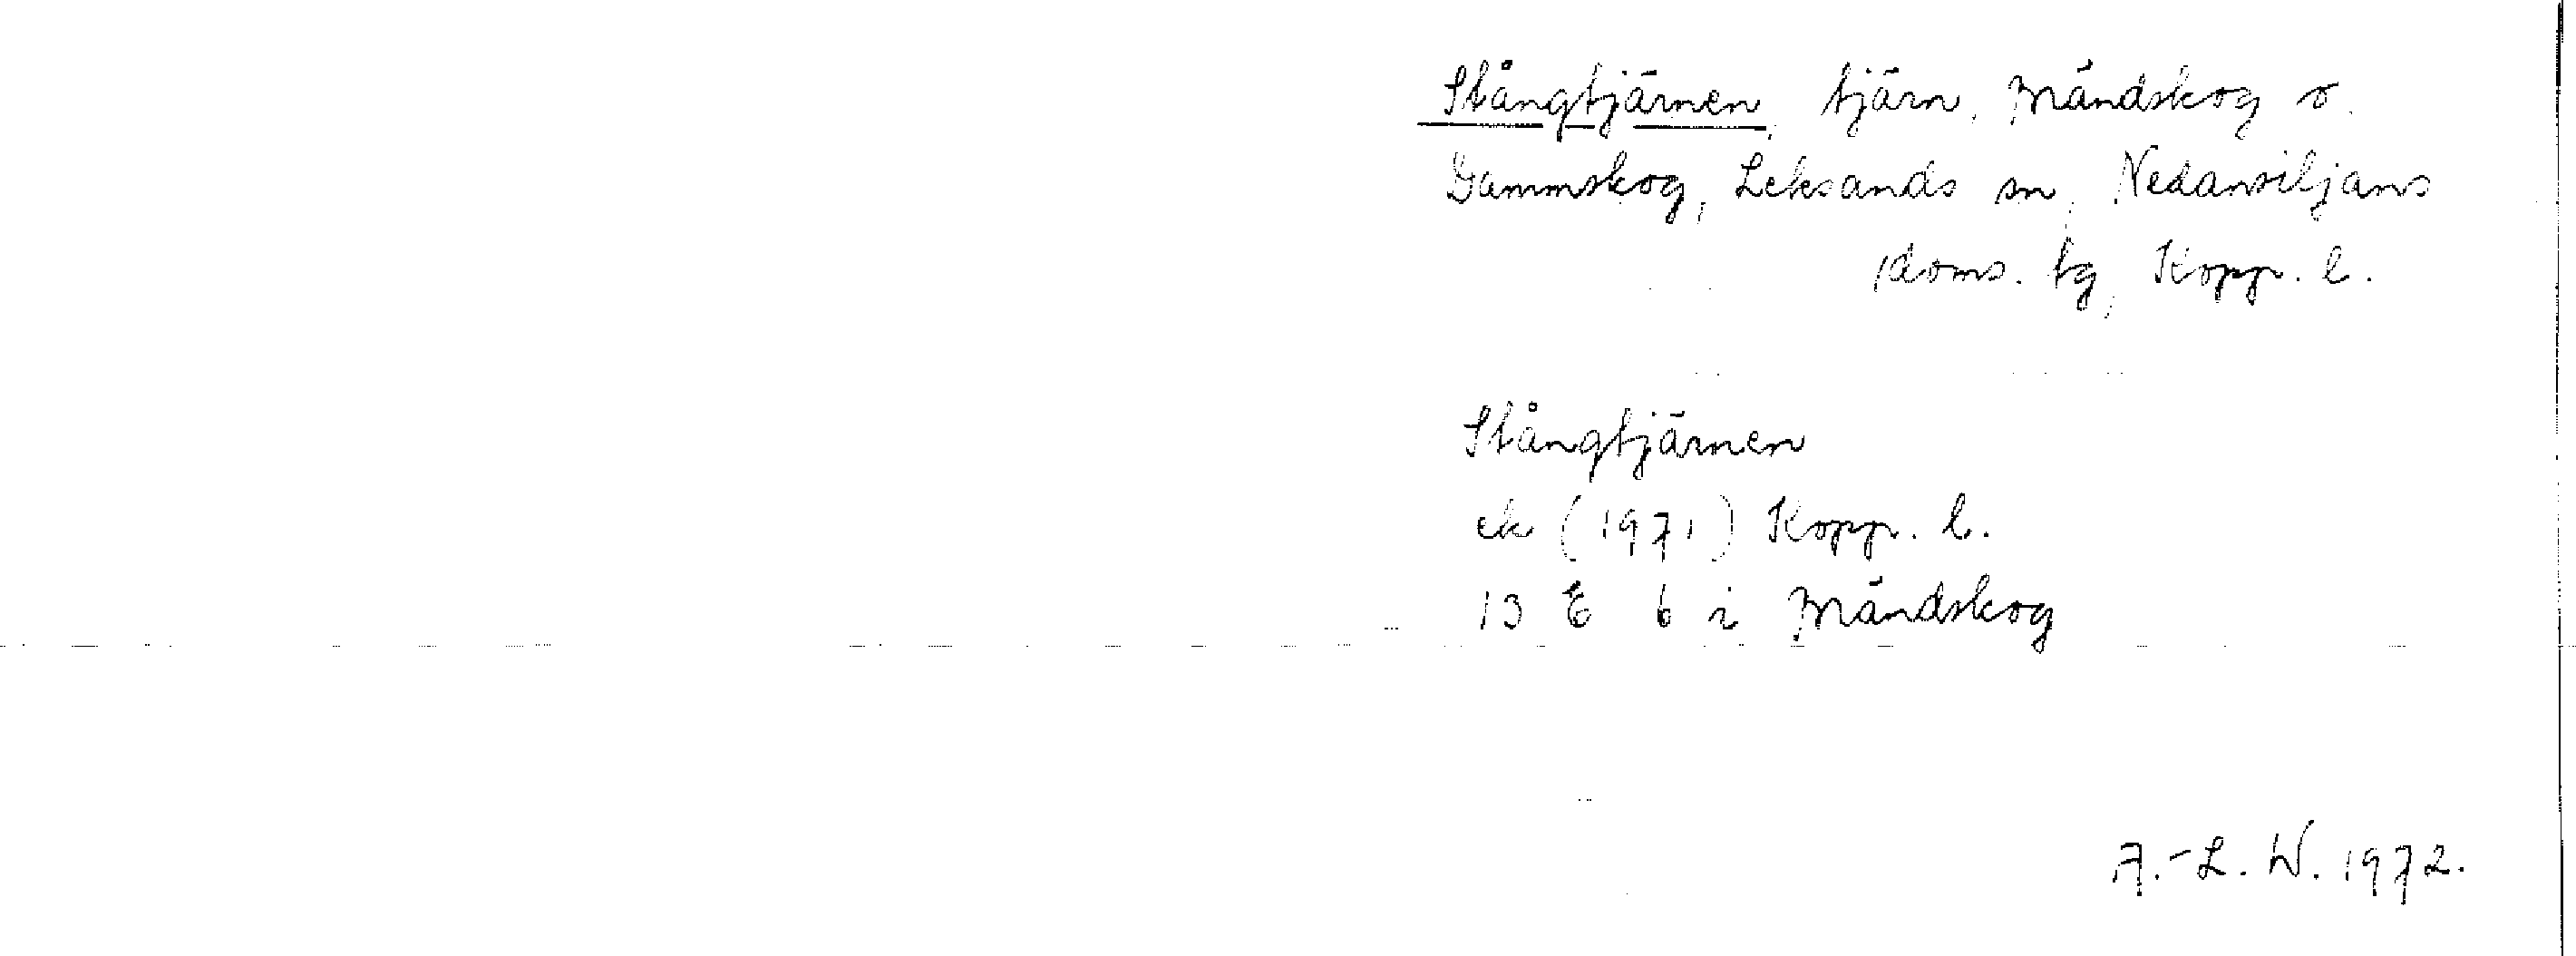 Stångtjärnen, tjärn, Måndskog o.
Gammskog, Leksands sn, Nedansiljans
doms. tg, Kopp. l.
Stångtjärnen
ek (1971) Kopp. l.
13 E 6 i Måndskog
A.-L. W. 1972.